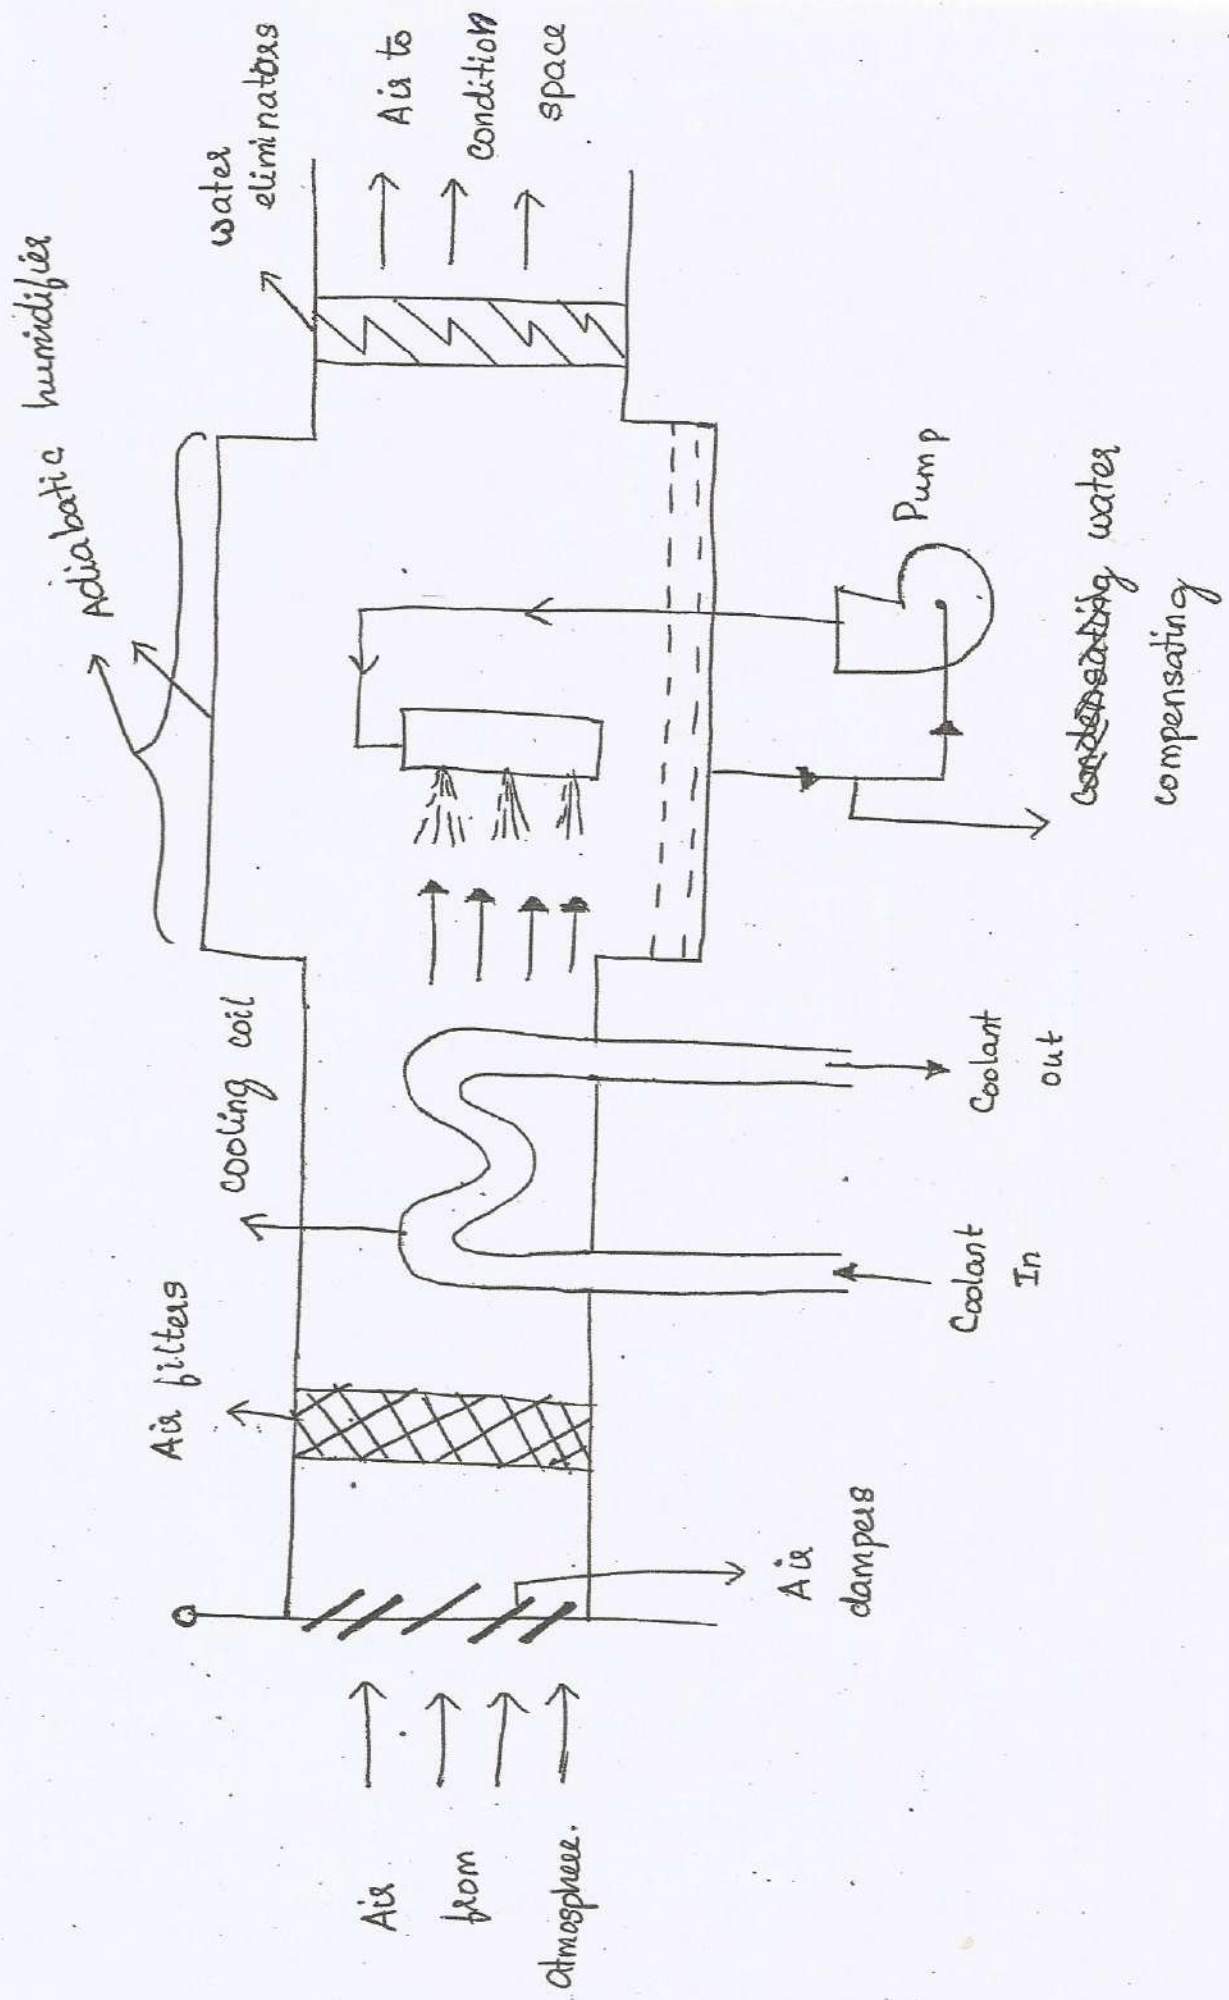 Air
from
atmosphere.
Air
dampers
Air filters
cooling coil
Coolant
In
Coolant
out
Adiabatic humidifier
Pump
condensating water
compensating
water
eliminators
Air to
condition
space